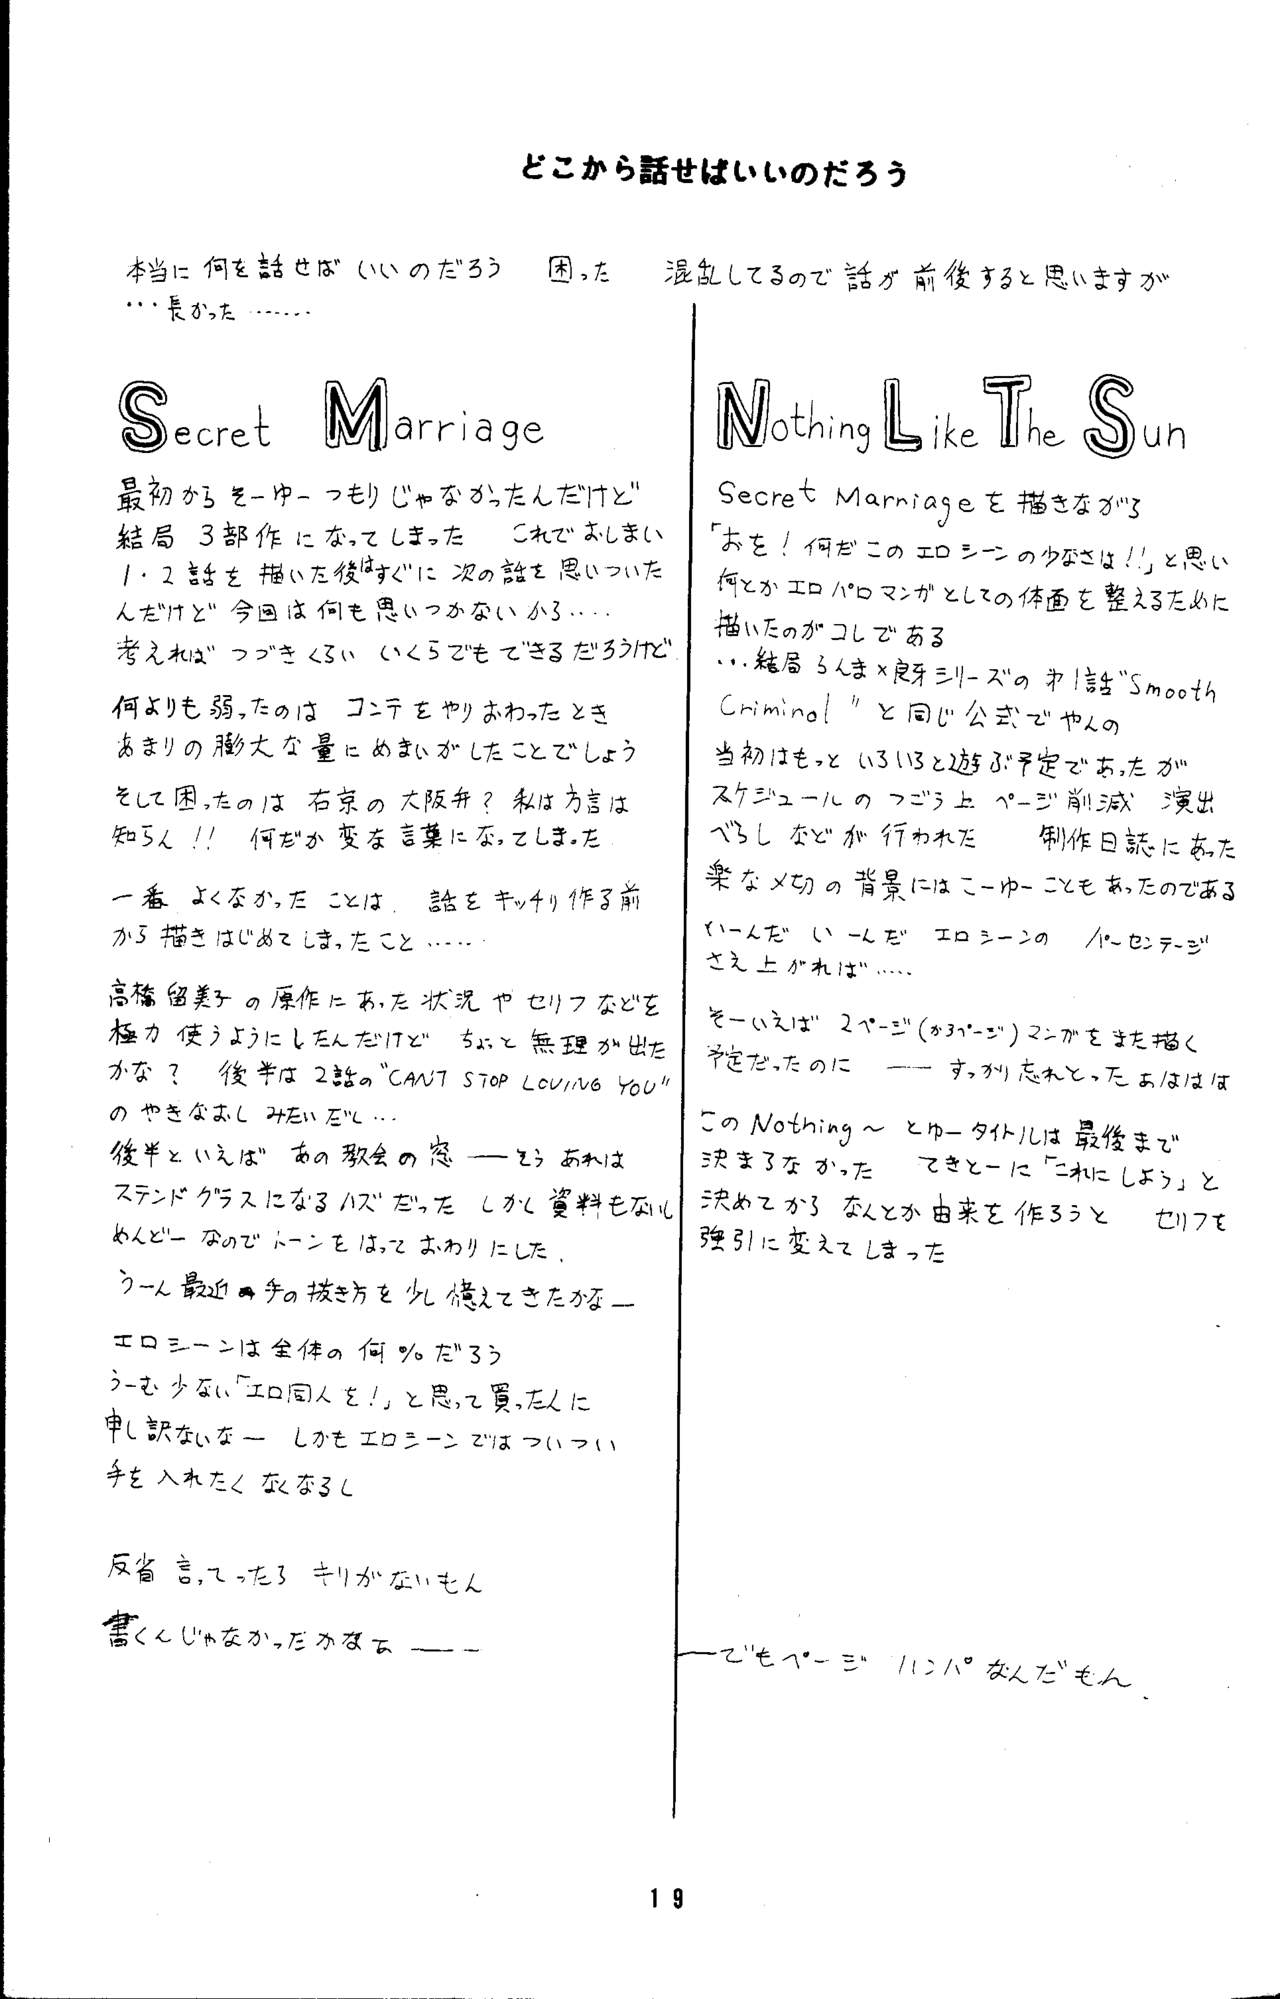 どこから話せばいいのだろう
本当に何を話せばいいのだろう 困った 混乱してるので話が前後すると思いますが
…長かった……
Secret Marriage
最初からそーゆーつもりじゃなかったんだけど
結局 3部作になってしまった これでおしまい
1・2話を描いた後はすぐに次の話を思いついた
んだけど今回は何も思いつかないから‥‥
考えればつづきくらいいくらでもできるだろうけど
何よりも弱ったのは コンテをやりおわったとき
あまりの膨大な量にめまいがしたことでしょう
そして困ったのは 右京の大阪弁? 私は方言は
知らん!! 何だか変な言葉になってしまった
一番よくなかったことは 話をキッチリ作る前
から描きはじめてしまったこと……
高橋留美子の原作にあった状況やセリフなどを
極力使うようにしたんだけど ちょっと無理が出た
かな? 後半は2話の"CANT STOP LOVING YOU"
のやきなおしみたいだし…
後半といえば あの教会の窓――そう あれは
ステンドグラスになるハズだった しかし資料もないし
めんどーなのでトーンをはっておわりにした.
うーん最近手の抜き方を少し憶えてきたかなー
エロシーンは全体の何%だろう
うーむ少ない「エロ同人を!」と思って買った人に
申し訳ないなー しかもエロシーンではついつい
手を入れたくなくなるし
反省言ってったらキリがないもん
書くんじゃなかったかなぁ ―――
Nothing Like The Sun
Secret Marriageを描きながら
「おを!何だこのエロシーンの少なさは!!」と思い
何とかエロパロマンガとしての体面を整えるために
描いたのがコレである
…結局らんま×良牙シリーズの第1話"Smooth
Criminal"と同じ公式でやんの
当初はもっといろいろと遊ぶ予定であったが
スケジュールのつごう上 ページ削減 演出
べらし などが行われた 制作日誌にあった
楽な〆切の背景にはこーゆーこともあったのである
いーんだいーんだ エロシーンの パーセンテージ
さえ上がれば‥‥‥
そーいえば 2ページ(か3ページ)マンガをまた描く
予定だったのに ―― すっかり忘れとった あははは
このNothing〜とゆータイトルは最後まで
決まらなかった てきとーに「これにしよう」と
決めてから なんとか由来を作ろうと セリフを
強引に変えてしまった
―でもページ ハンパなんだもん.
19